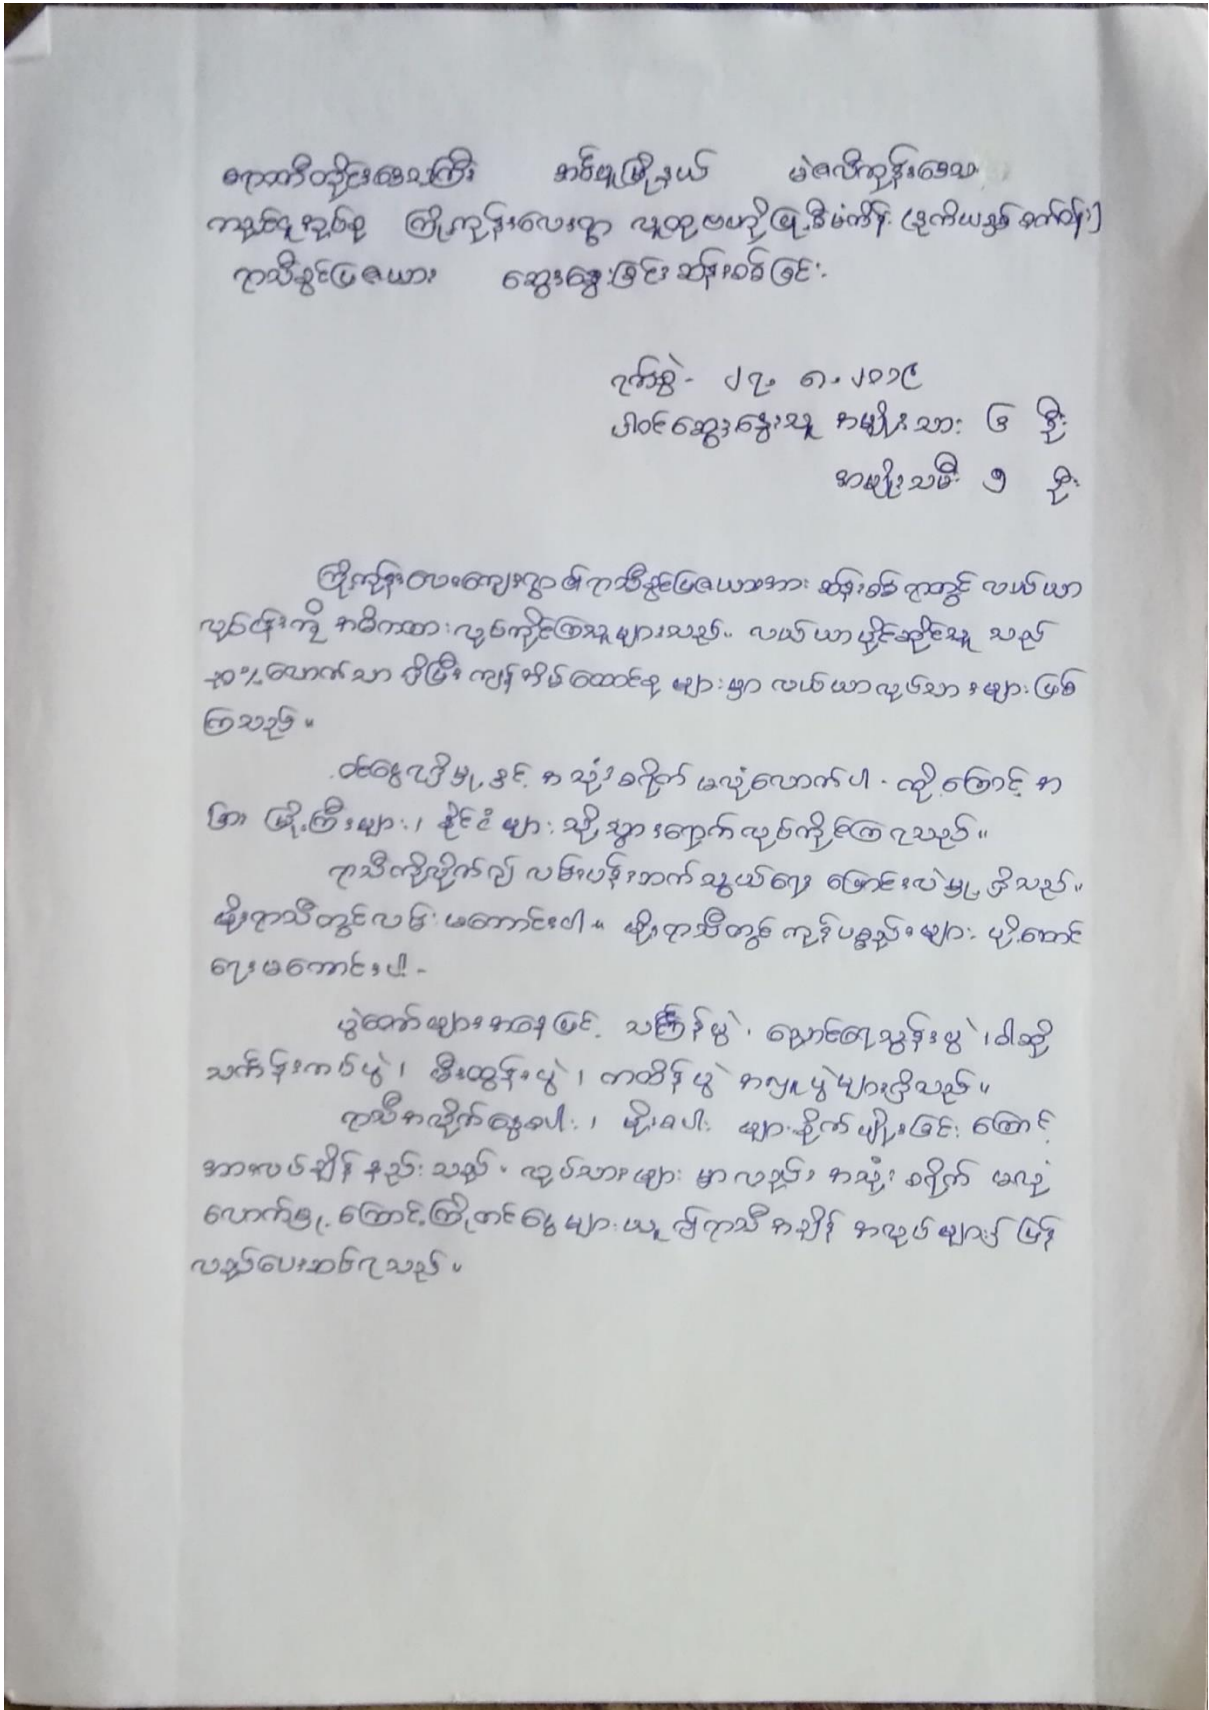 ဧရာဝတီတိုင်းဒေသကြီး အင်္ဂပူမြို့နယ် မဲဇလီကုန်းဒေသ
ကညင်ငူအုပ်စု ကြို့ကုန်းလေးရွာ လူထုဗဟိုပြုစီမံကိန်း (ဒုတိယနှစ် စက်ဝန်း)
ရာသီခွင်ပြဇယား ဆွေးနွေးခြင်းဆန်းစစ်ခြင်း
ရက်စွဲ - ၂၇. ၈. ၂၀၁၉
ပါဝင်ဆွေးနွေးသူ အမျိုးသား ၆ ဦး
အမျိုးသမီး ၅ ဦး
ကြို့ကုန်းလေးကျေးရွာ၏ရာသီခွင်ပြဇယားအား ဆန်းစစ်ရာတွင် လယ်ယာ
လုပ်ငန်းကို အဓိကထားလုပ်ကိုင်ကြသူများသည်။ လယ်ယာပိုင်ဆိုင်သူ သည်
၃၀%လောက်သာ ရှိပြီး ကျန်အိမ်ထောင်စု များမှာ လယ်ယာလုပ်သားများဖြစ်
ကြသည်။
ဝင်ငွေရရှိမှု နှင့် အသုံးစရိတ် မလုံလောက်ပါ - ထို့ကြောင့် အ
ခြား မြို့ကြီးများ၊ နိုင်ငံများ သို့သွားရောက်လုပ်ကိုင်ကြရသည်။
ရာသီကိုလိုက်၍ လမ်းပန်းဆက်သွယ်ရေး ပြောင်းလဲမှု ရှိသည်။
မိုးရာသီတွင်လမ်းမကောင်းပါ။ မိုးရာသီတွင် ကုန်ပစ္စည်းများ ပို့ဆောင်
ရေးမကောင်းပါ -
ပွဲတော်များအနေဖြင့် သင်္ကြန်ပွဲ၊ ညောင်ရေသွန်းပွဲ၊ ဝါဆို
သင်္ကန်းကပ်ပွဲ၊ မီးထွန်းပွဲ၊ ကထိန်ပွဲ အလှူပွဲများရှိသည်။
ရာသီအလိုက်နွေစပါး၊ မိုးစပါး များစိုက်ပျိုးခြင်း ကြောင့်
အားလပ်ချိန် နည်းသည်။ လုပ်သားများ မှာလည်း အသုံး စရိတ် မလုံ
လောက်မှု ကြောင့်ကြိုတင်ငွေများယူ၍ရာသီအချိန် အလုပ်များ၌ ပြန်
လည်ပေးဆပ်ရသည်။